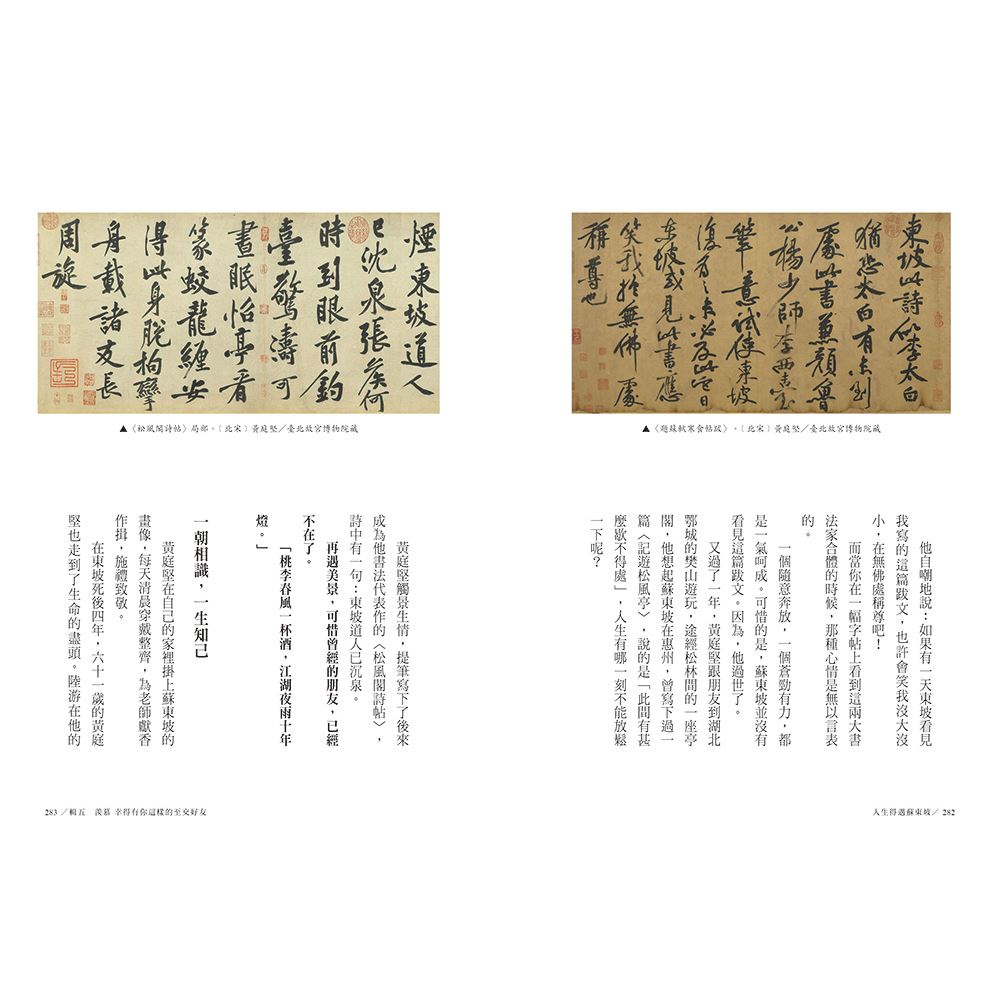 東坡此詩似李太白
猶恐太白有未到
處此書兼顏魯
公楊少師李西臺
筆意試使東坡
復為之未必及此它日
東坡或見此書應
笑我於無佛處
稱尊也
▲〈題蘇軾寒食帖跋〉。〔北宋〕黃庭堅／臺北故宮博物院藏
他自嘲地說：如果有一天東坡看見
我寫的這篇跋文，也許會笑我沒大沒
小，在無佛處稱尊吧！
而當你在一幅字帖上看到這兩大書
法家合體的時候，那種心情是無以言表
的。
一個隨意奔放，一個蒼勁有力，都
是一氣呵成。可惜的是，蘇東坡並沒有
看見這篇跋文。因為，他過世了。
又過了一年，黃庭堅跟朋友到湖北
鄂城的樊山遊玩，途經松林間的一座亭
閣，他想起蘇東坡在惠州，曾寫下過一
篇〈記遊松風亭〉，說的是「此間有甚
麼歇不得處」，人生有哪一刻不能放鬆
一下呢？
人生得遇蘇東坡／282
煙東坡道人
已沈泉張侯何
時到眼前釣
臺驚濤可
晝眠怡亭看
篆蛟龍纏安
得此身脫拘攣
舟載諸友長
周旋
▲〈松風閣詩帖〉局部。〔北宋〕黃庭堅／臺北故宮博物院藏
黃庭堅觸景生情，提筆寫下了後來
成為他書法代表作的〈松風閣詩帖〉，
詩中有一句：東坡道人已沉泉。
再遇美景，可惜曾經的朋友，已經
不在了。
「桃李春風一杯酒，江湖夜雨十年
燈。」
一朝相識，一生知己
黃庭堅在自己的家裡掛上蘇東坡的
畫像，每天清晨穿戴整齊，為老師獻香
作揖，施禮致敬。
在東坡死後四年，六十一歲的黃庭
堅也走到了生命的盡頭。陸游在他的
283／輯五　羨慕 幸得有你這樣的至交好友